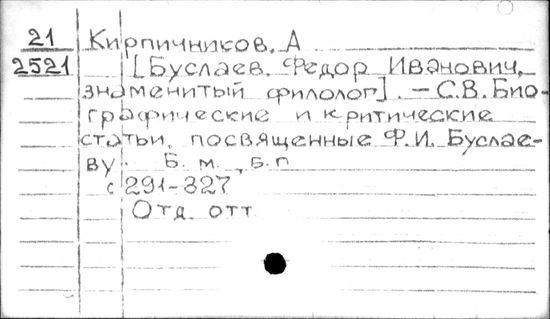 21 Кирпичников, А
2521 [Буслаев, Федор Иванович,
знаменитый филолог]. – С.В. Био-
графические и критические
статьи, посвященные Ф.И. Буслае-
ву. Б. м., б. г
с 291-327
Отд. отт